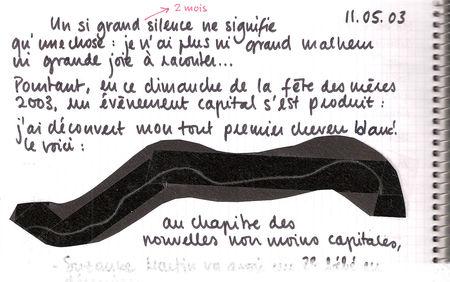 2 mois
11.05.03
Un si grand silence ne signifie
qu'une chose : je n'ai plus ni grand malheur
ni grande joie à raconter...
Pourtant, en ce dimanche de la fête des mères
2003, un évènement capital s'est produit :
j'ai découvert mon tout premier cheveu blanc !
Le voici :
au chapitre des
nouvelles non moins capitales,
- Suzanne Martin va avoir un 2e bébé en